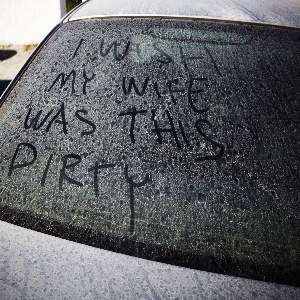 I WISH
MY WIFE
WAS THIS
DIRTY